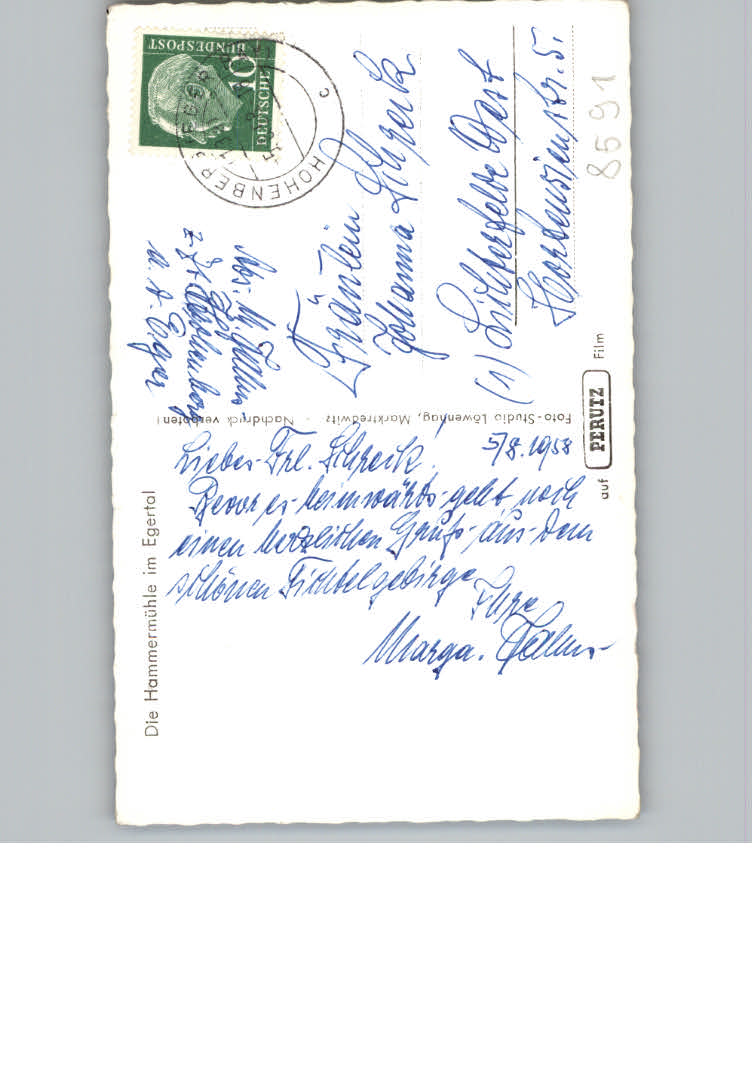 Die Hammermühle im Egertal
5/8.1958
Liebes Frl. Schreck!
Bevor es heimwärts geht noch
einen herzlichen Gruß aus dem
schönen Fichtelgebirge
Ihre
Marga.
Foto-Studio Löwenhag, Marktredwitz - Nachdruck verboten!
auf PERUTZ Film
DEUTSCHE
BUNDESPOST
10
HOHENBERG
c
Abs. M.
z. Zt. Hohenberg
a. d. Eger
Fräulein
Johanna Schreck
(1) Lichterfelde West
Hortensienstr. 5.
8591